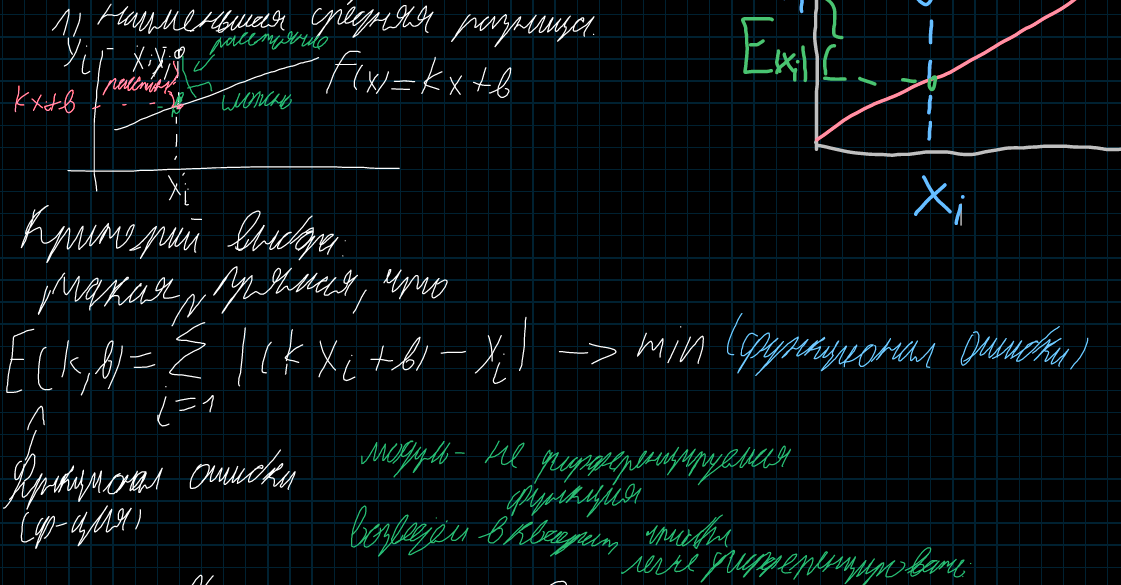 1) Наименьшая средняя разница.
yi
xi yi
расстояние
f(x) = kx+в
kx+в
можно
xi
E(xi)
xi
Критерий выбора:
такая прямая, что
E(k,в) = N ∑ i=1 |(k xi + в) - yi| -> min (функционал ошибки)
Функционал ошибки
(ф-ция)
модуль - не дифференцируемая
функция
возведём в квадрат чтобы
легче дифференцировать.